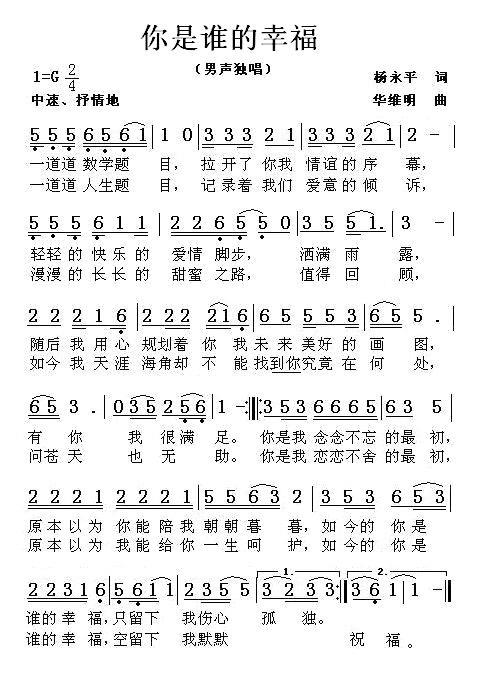 你是谁的幸福
（男声独唱）
1=G 2/4
杨永平 词
中速、抒情地
华维明 曲
5 5 5 6 5 6 1 | 1 0 | 3 3 3 3 2 1 | 3 3 3 2 1 | 2 - |
一道道 数学题 目， 拉开了 你我 情谊的序 幕，
一道道 人生题 目， 记录着 我们 爱意的倾 诉，
5 5 5 6 1 1 | 2 2 6 5 5 0 | 3 5 5 5 1. |
轻轻的 快乐的 爱情 脚步， 洒满 雨 露，
漫漫的 长长的 甜蜜 之路， 值得 回 顾，
2 2 2 1 6 | 2 2 2 2 1 6 | 6 5 5 5 3 | 6 5 5 . |
随后 我 用心 规划着 你 我 未来 美好的 画 图，
如今 我 天涯 海角却 不 能 找到你究竟 在 何 处，
6 5 3 . | 0 3 5 2 5 6 | 1 - :||: 3 5 3 6 6 6 5 | 6 3 5 |
有 你 我 很满 足。 你是我 念念不忘 的最 初，
问苍 天 也 无 助。 你是我 恋恋不舍 的最 初，
2 2 2 1 2 2 2 1 | 5 5 6 3 2 | 3 5 3 6 5 3 |
原本以为 你能陪我 朝朝暮 暮， 如今的 你是
原本以为 我能给你 一生呵 护， 如今的 你是
2 2 3 1 6 | 5 6 1 1 | 2 3 5 5 | 3 2 3 3 :|| 3 6 1 | 1 - ||
1.
2.
谁的幸 福，只留下 我伤心 孤 独。
谁的幸 福，空留下 我默默 祝 福。